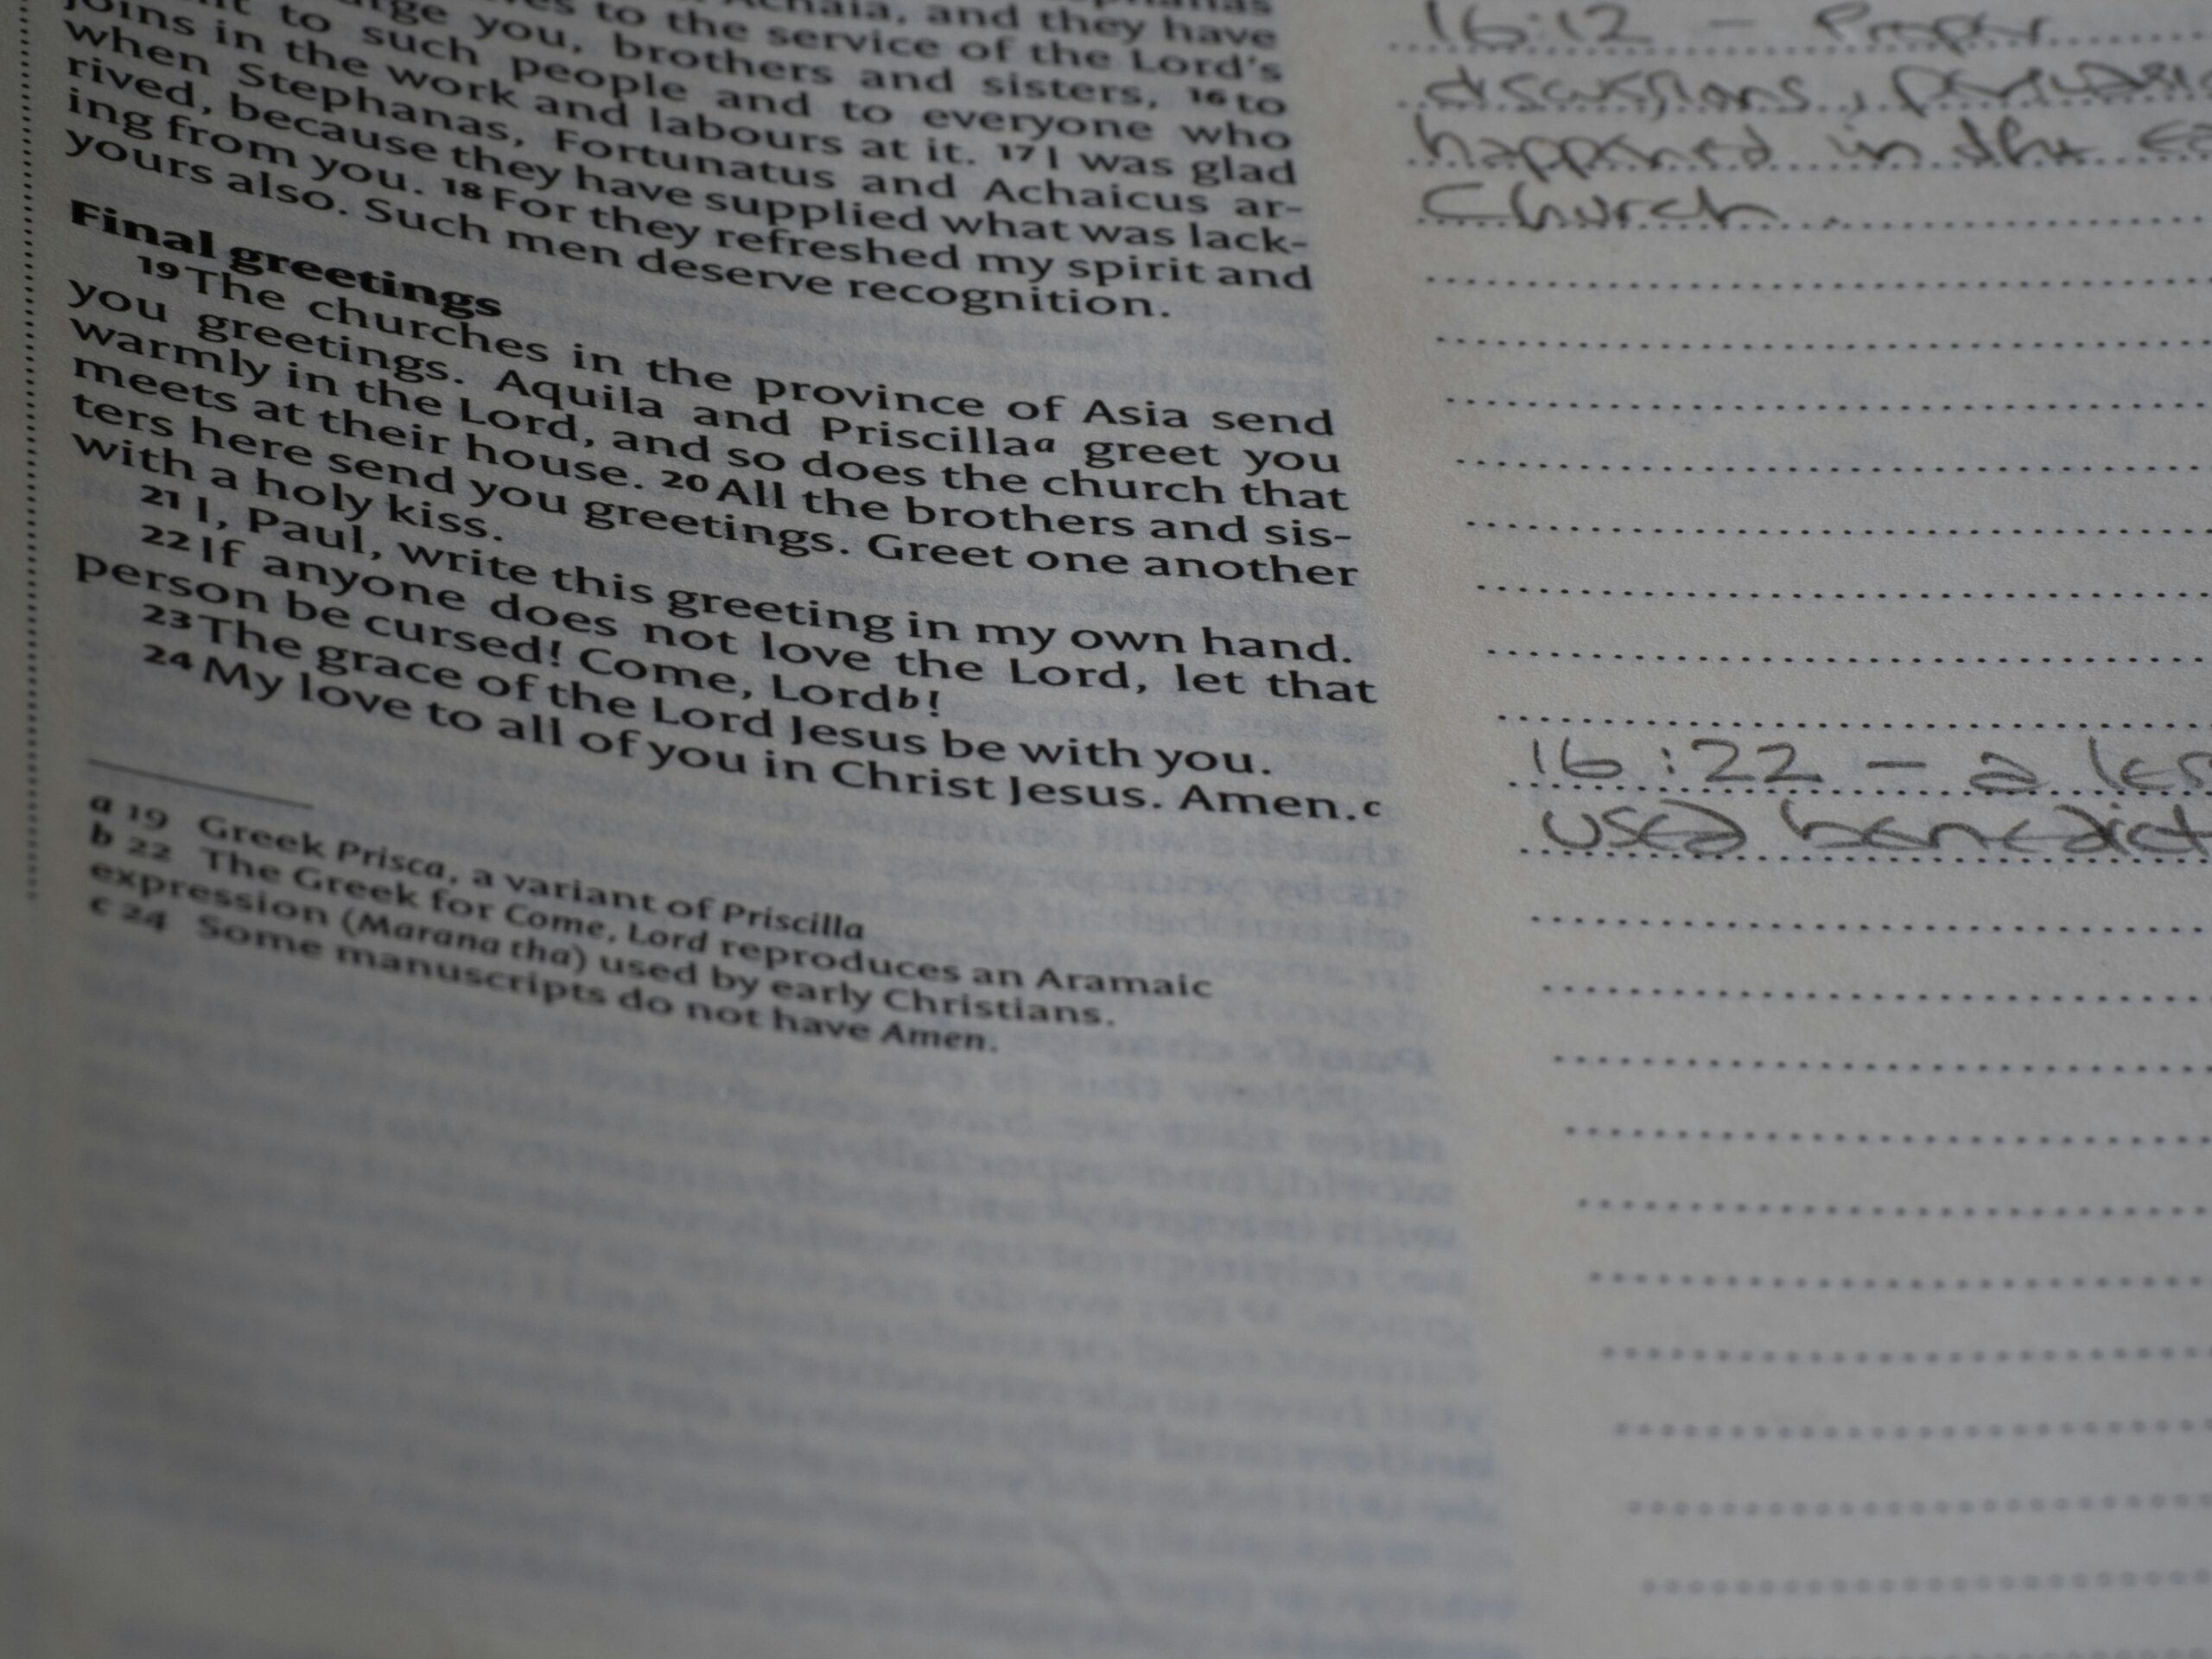 Achaia, and they have
to the service of the Lord's
you, brothers and sisters, 16 to
to such people and to everyone who
joins in the work and labours at it. 17 I was glad
when Stephanas, Fortunatus and Achaicus ar-
rived, because they have supplied what was lack-
ing from you. 18 For they refreshed my spirit and
yours also. Such men deserve recognition.
Final greetings
19 The churches in the province of Asia send
you greetings. Aquila and Priscilla a greet you
warmly in the Lord, and so does the church that
meets at their house. 20 All the brothers and sis-
ters here send you greetings. Greet one another
with a holy kiss.
21 I, Paul, write this greeting in my own hand.
22 If anyone does not love the Lord, let that
person be cursed! Come, Lord b!
23 The grace of the Lord Jesus be with you.
24 My love to all of you in Christ Jesus. Amen. c
a 19 Greek Prisca, a variant of Priscilla
b 22 The Greek for Come, Lord reproduces an Aramaic
expression (Marana tha) used by early Christians.
c 24 Some manuscripts do not have Amen.
16:12 -
discussions,
happened in the
Church.
16:22 - a
used benedict